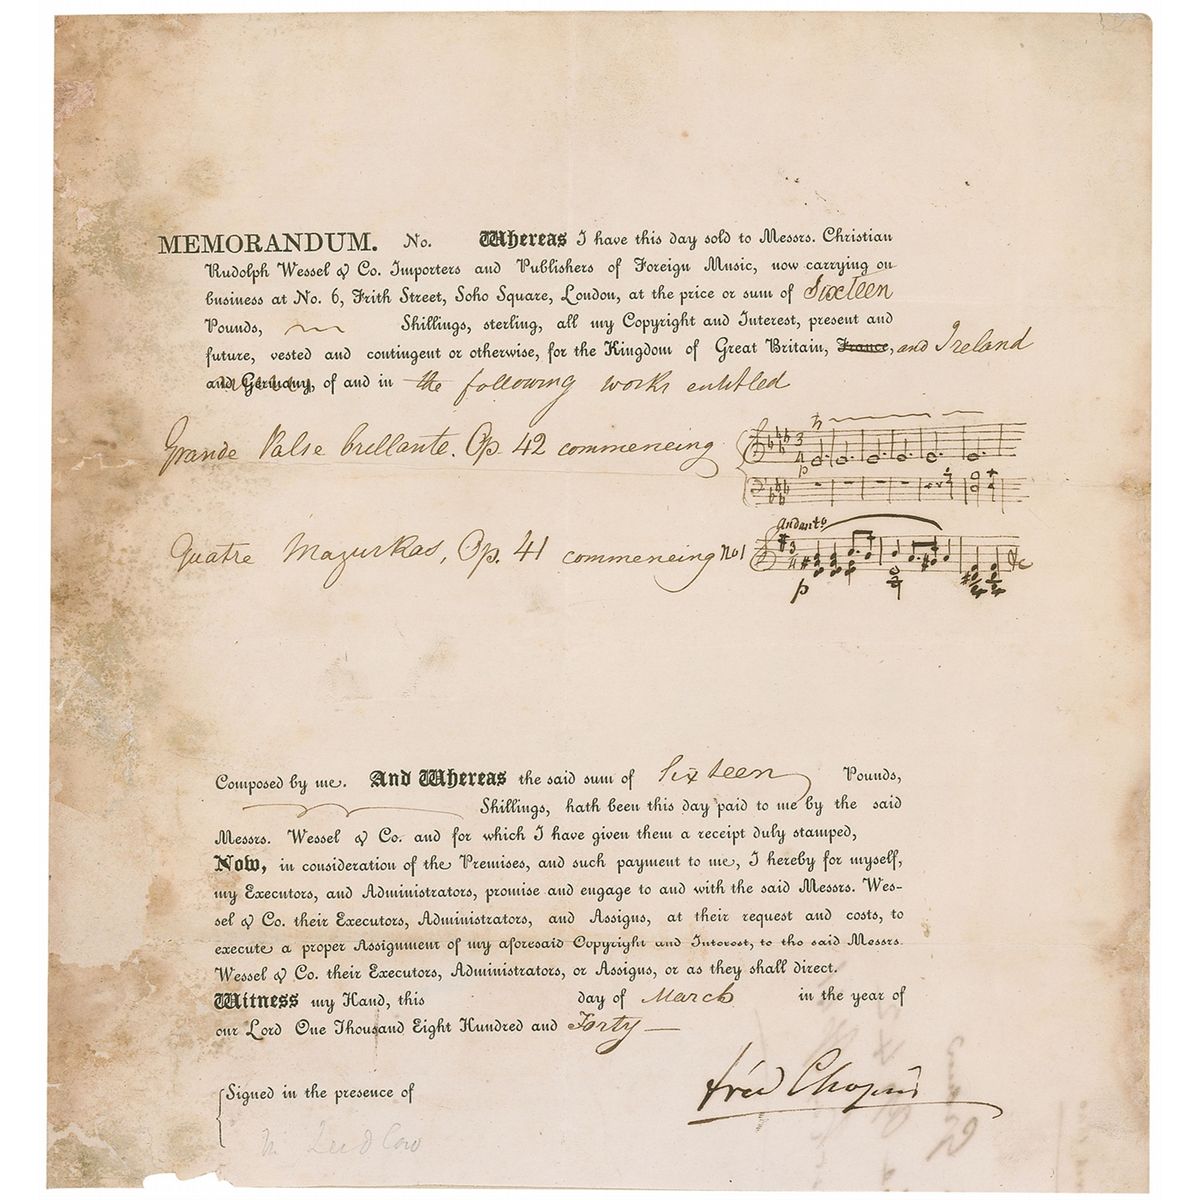 MEMORANDUM. No. Whereas I have this day sold to Messrs. Christian
Rudolph Wessel & Co. Importers and Publishers of Foreign Music, now carrying on
business at No. 6, Frith Street, Soho Square, London, at the price or sum of Sixteen
Pounds, Shillings, sterling, all my Copyright and Interest, present and
future, vested and contingent or otherwise, for the Kingdom of Great Britain, France, and Ireland
and Germany, of and in the following works entitled
Grande Valse brellante. Op. 42 commencing
p
Andante
Quatre Mazurkas, Op. 41 commencing No 1
p
Composed by me. And Whereas the said sum of Sixteen Pounds,
Shillings, hath been this day paid to me by the said
Messrs. Wessel & Co. and for which I have given them a receipt duly stamped,
Now, in consideration of the Premises, and such payment to me, I hereby for myself,
my Executors, and Administrators, promise and engage to and with the said Messrs. Wes-
sel & Co. their Executors, Administrators, and Assigns, at their request and costs, to
execute a proper Assignment of my aforesaid Copyright and Interest, to the said Messrs.
Wessel & Co. their Executors, Administrators, or Assigns, or as they shall direct.
Witness my Hand, this day of March in the year of
our Lord One Thousand Eight Hundred and Forty
fréd Chopin
Signed in the presence of